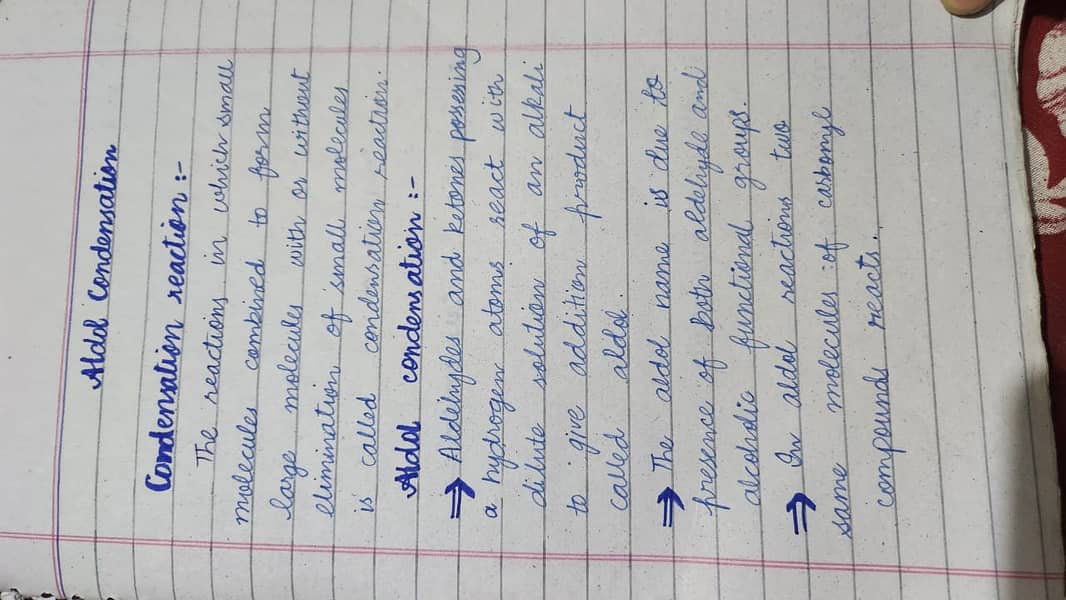 Aldol Condensation
Condensation reaction :-
The reactions in which small
molecules combined to form
large molecules with or without
elimination of small molecules
is called condensation reaction.
Aldol condensation :-
⇒ Aldehydes and ketones possessing
a hydrogenc atoms react with
dilute solution of an alkali
to give addition product
called aldol.
⇒ The aldol name is due to
presence of both aldehyde and
alcoholic functional groups.
⇒ In aldol reactions two
same molecules of carbonyl
compounds reacts.